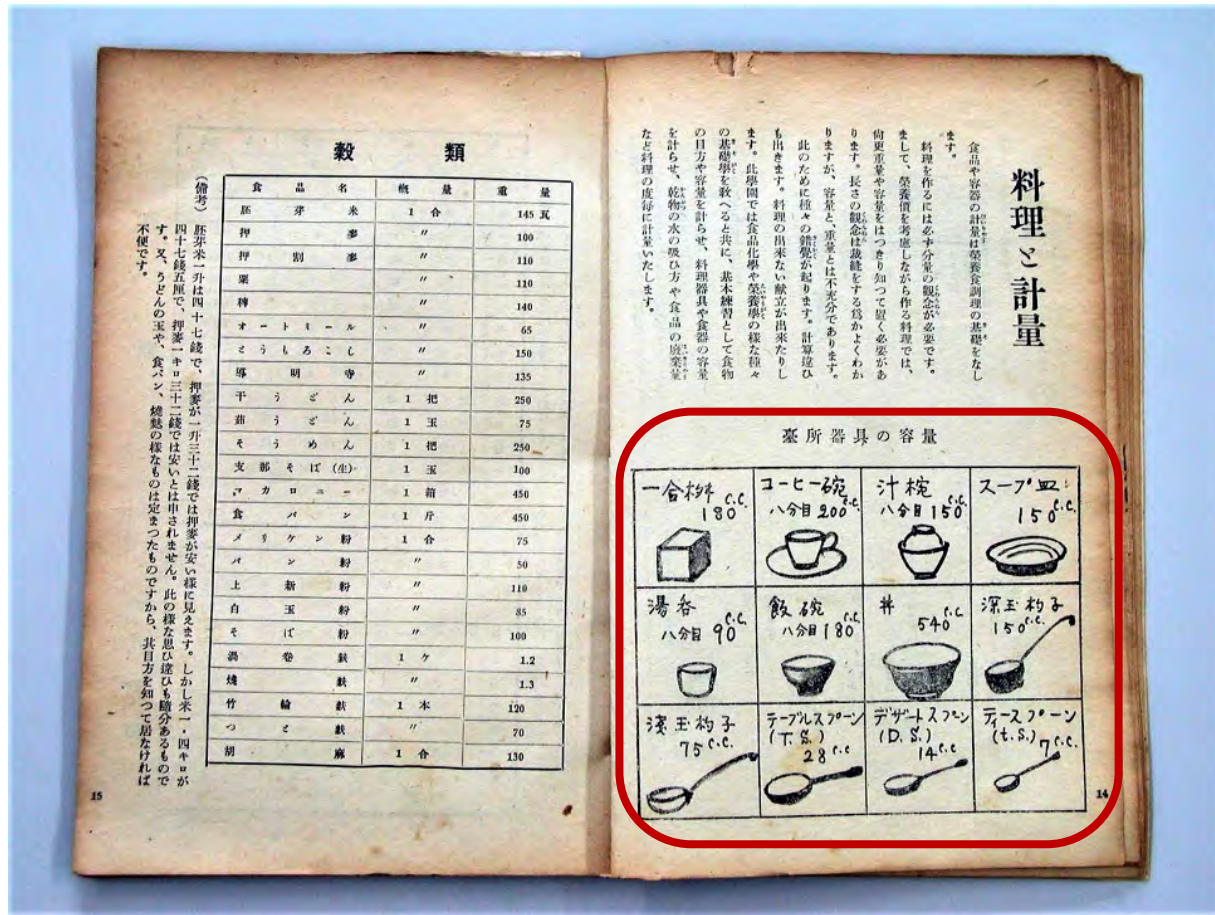 料理と計量
食品や容器の計量は榮養食調理の基礎をなし
ます。
料理を作るには必ず分量の觀念が必要です。
まして、榮養價を考慮しながら作る料理では、
尙更重量や容量をはつきり知つて置く必要があ
ります。長さの觀念は裁縫をする爲かよくわか
りますが、容量と、重量とは不充分であります。
此のために種々の錯覺が起ります。計算違ひ
も出きます。料理の出來ない献立が出來たりし
ます。此學園では食品化學や榮養學の樣な種々
の基礎學を敎へると共に、基本練習として食物
の目方や容量を計らせ、料理器具や食器の容量
を計らせ、乾物の水の吸ひ方や食品の廢棄量
など料理の度每に計量いたします。
臺所器具の容量
一合桝 180c.c.
コーヒー碗 八分目200c.c.
汁椀 八分目150c.c.
スープ皿 150c.c.
湯呑 八分目90c.c.
飯碗 八分目180c.c.
丼 540c.c
深玉杓子 150c.c.
淺玉杓子 75c.c.
テーブルスプーン (T.S.) 28c.c
デザートスプーン (D.S.) 14c.c
ティースプーン (t.s.) 7c.c.
14
穀類
食品名 概量 重量
胚芽米 1合 145瓦
押麥 〃 100
押割麥 〃 110
粟 〃 110
稗 〃 140
オートミール 〃 65
とうもろこし 〃 150
導明寺 〃 135
干うどん 1把 250
茹うどん 1玉 75
そうめん 1把 250
支那そば(生) 1玉 100
マカロニー 1箱 450
食パン 1斤 450
メリケン粉 1合 75
パン粉 〃 50
上新粉 〃 110
白玉粉 〃 85
そば粉 〃 100
渦卷麩 1ケ 1.2
燒麩 1.3
竹輪麩 1本 120
つと麩 〃 70
胡麻 1合 130
(備考) 胚芽米一升は四十七錢で、押麥が一升三十二錢では押麥が安い樣に見えます。しかし米一・四キロが
四十七錢五厘で、押麥一キロ三十二錢では安いとは申されません。此の樣な思ひ違ひも隨分あるもので
す。又、うどんの玉や、食パン、燒麩の樣なものは定まつたものですから、其目方を知つて居なければ
不便です。
15